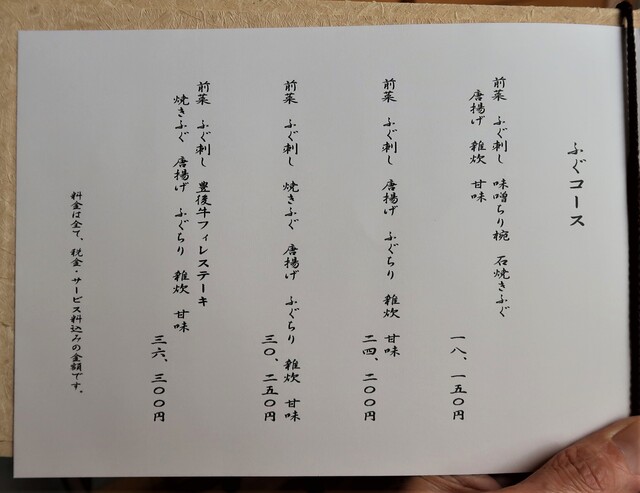 ふぐコース
前菜 ふぐ刺し 味噌ちり椀 石焼きふぐ
唐揚げ 雑炊 甘味
一八、一五〇円
前菜 ふぐ刺し 唐揚げ ふぐちり 雑炊 甘味
二四、二〇〇円
前菜 ふぐ刺し 焼きふぐ 唐揚げ ふぐちり 雑炊 甘味
三〇、二五〇円
前菜 ふぐ刺し 豊後牛フィレステーキ
焼きふぐ 唐揚げ ふぐちり 雑炊 甘味
三六、三〇〇円
料金は全て、税金・サービス料込みの金額です。